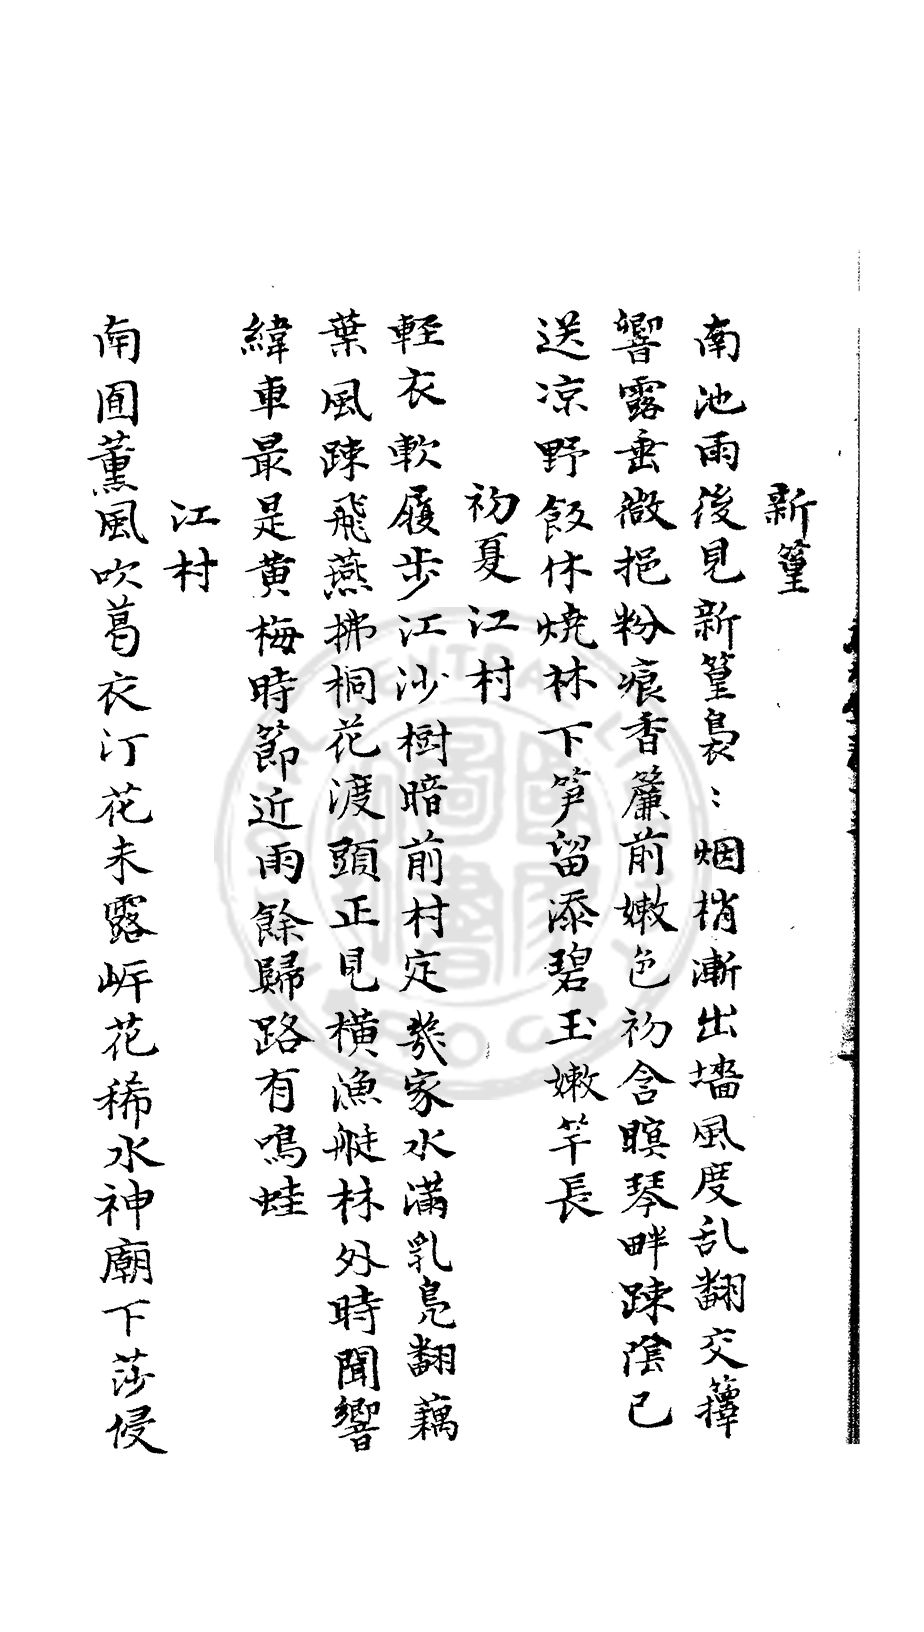 新篁
南池雨後見新篁裊〻烟梢漸出墻風度乱翻交籜
響露垂微挹粉痕香簾前嫩色初含瞑琴畔踈陰已
送凉野飯休燒林下笋留添碧玉嫩竿長
初夏江村
軽衣軟履步江沙樹暗前村定幾家水滿乳鳧翻藕
葉風踈飛燕拂桐花渡頭正見橫漁艇林外時聞響
緯車最是黄梅時節近雨餘歸路有鳴蛙
江村
南囿薰風吹葛衣汀花未露岍花稀水神廟下莎侵